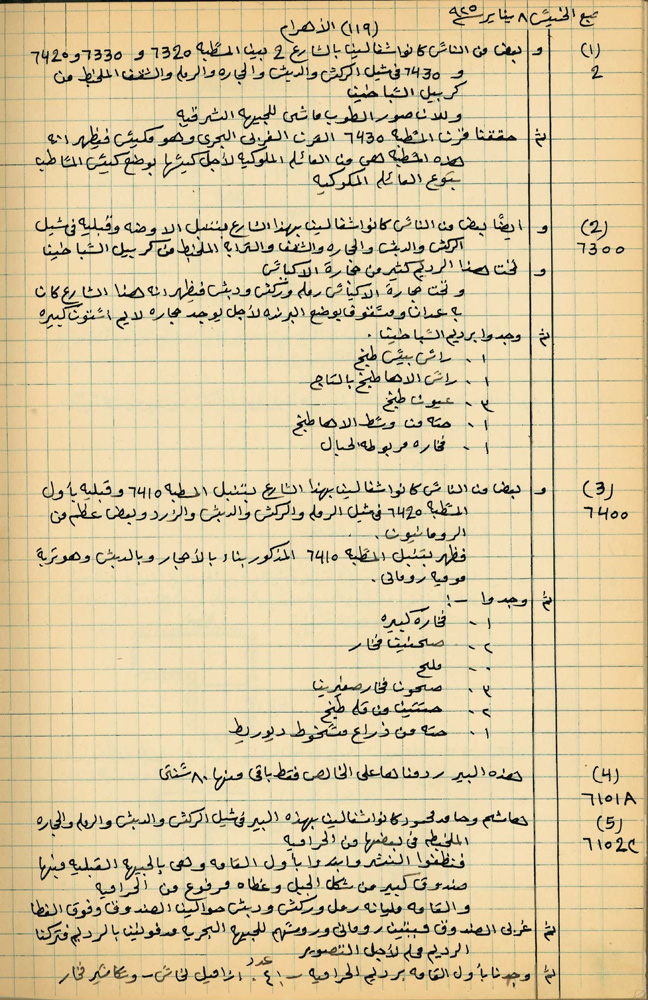 صبح الخميس ٨ يناير ٩٢٥
(١١٩) الأهرام
(1) و بعض من الناس كانوا شغالين بالشارع 2 بين المسطبة 7320 و 7330 و 7420
2 و 7430 في شيل الركش والدبش والحجاره والرمله والشقف المخلط من
كربيل الشباحطينا
وللان صور الطوب ماشى للجهة الشرقيه
ثم حققنا فرن المسطبه 7430 الفرن الغربى البحرى وهو مكيس فيظهر انه
هذه المسطبه هى من العائلم الملوكيه لأجل كيسها بوضع كيس المساطب
بتوع العائلم الملوكيه
(2) و ايضًا بعض من الناس كانوا شغالين بهذا الشارع بتنبل الاوضه وقبليه في شيل
7300 الركش والدبش والحجاره والشقف والتراب المخلط من كربيل الشباحطينا
و تحت هذا الرديم كثير من حجارة الاكباش
و تحت حجارة الاكباش رمله وركش ودبش فيظهر انه هذا الشارع كان
به عمدان ومسقوف بوضع البرنده لأجل يوجد حجاره لايم استون كبيره
ثم وجدوا برديم الشباحطينا .
١ . راس بيس طبخ
١ . راس الاها طبخ بالتاج
٣ . عيون طبخ
١ . حته من وسط الاها طبخ
١ . فخاره مربوطه الحبال
(3) و بعض من الناس كانوا شغالين بهذا الشارع بتنبل المسطبه 7410 وقبليه بأول
7400 المسطبه 7420 في شيل الرمله والركش والدبش والزرد وبعض عظم من
الرومانيون .
فظهر بتنبل المسطبه 7410 المذكور بناء بالأحجار وبالدبش وهو تربة
موميه رومانى .
ثم وجدوا :-
١ . فخاره كبيره
٢ . صحنين فخار
٠٠ ملح
٣ . صحون فخار صغيرين
٢ . حتتين من قله طبخ
١ . حته من ذراع مشخوط ديوريط
(4) هذه البير ردمناها على الخالص فقط باقى منها ٨٠ سنتى
7101A
(5) هاشم وحامد محمود كانوا شغالين بهذه البير في شيل الركش والدبش والرمله والحجاره
7102C المخلطه في بعضها من الحراميه
فنظفوا النشر وابتدوا بأول القامه وهى بالجهة القبليه فيها
صندوق كبير من شكل الجبل وغطاه مرفوع من الحراميه
والقامه مليانه رمل وركش ودبش حوالين الصندوق وفوق الغطا
ثم غربى الصندوق ميتين رومانى وروسهم للجهة البحريه مدفونين بالرديم فتركنا
الرديم محله لأجل التصوير
ثم وجدنا بأول القامه برديم الحراميه - عدد ٤١ ازاميل نحاس - و كاشير فخار